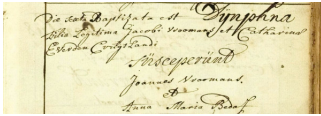 Die sexta Baptizata est Dijmphna
Filia Legitima Jacobi Vroomans et Catharina
Everden Conjugi
Susceperunt
Joannes Vroomans.
Et
Anna Maria